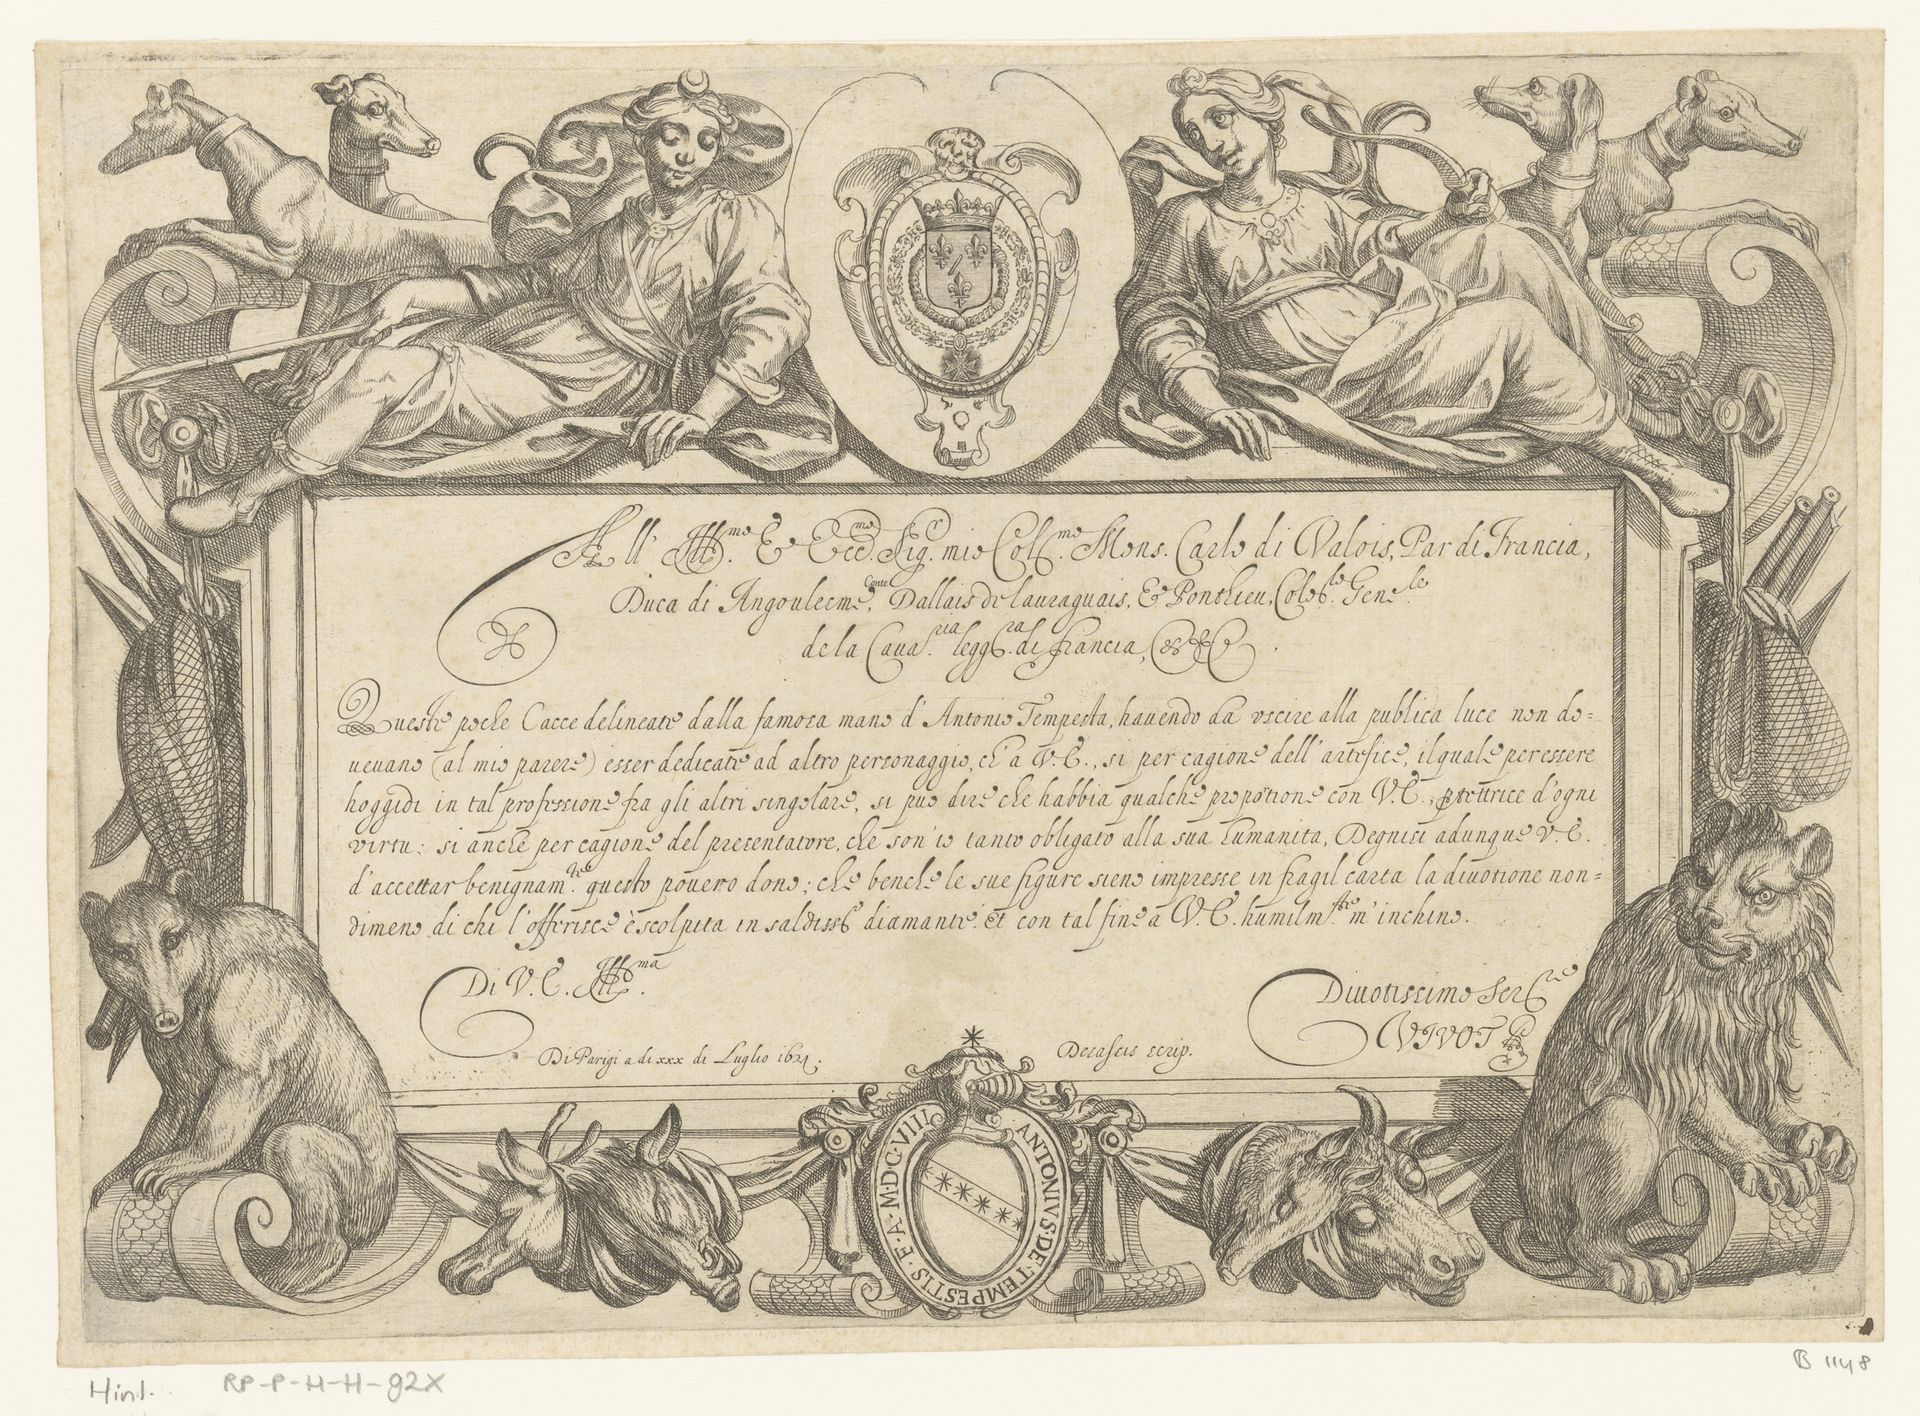 All' Ill.mo & Ecc.mo Sig.r mio Col.mo Mons. Carlo di Valois, Par di Francia,
Duca di Angoulesme, Conte Dallais de lauraguais, & Ponthieu, Gen.le
de la Caua.ria legg.ra di francia, &c
Queste poche Cacce delineate dalla famosa mano d'Antonio Tempesta, hauendo da vscire alla publica luce non do=
ueuano (al mio parere) esser dedicate ad altro personaggio, ch'a V.E., si per cagione dell'artefice, il quale per essere
hoggidi in tal professione fra gli altri singolare, si puo dire che habbia qualche propotione con V.E., ptettrice d'ogni
virtu: si anche per cagione del presentatore, che son'io tanto obligato alla sua humanita, Degnisi adunque V.E.
d'accettar benignam.te questo pouero dono; che benche le sue figure sieno impresse in fragil carta la diuotione non=
dimeno di chi l'offerisce è scolpita in saldiss.o diamante. Et con tal fine a V.E. humilm.te m'inchino.
Di V.E. Ill.ma
Diuotissimo Ser.re
VIVOT
Di Parigi a di xxx di Luglio 1621.
scrip.
ANTONIVS·DE·TEMPESTIS·F·A·M·DC·VIII
Hinl.
RP-P-H-H-92X
B 1148